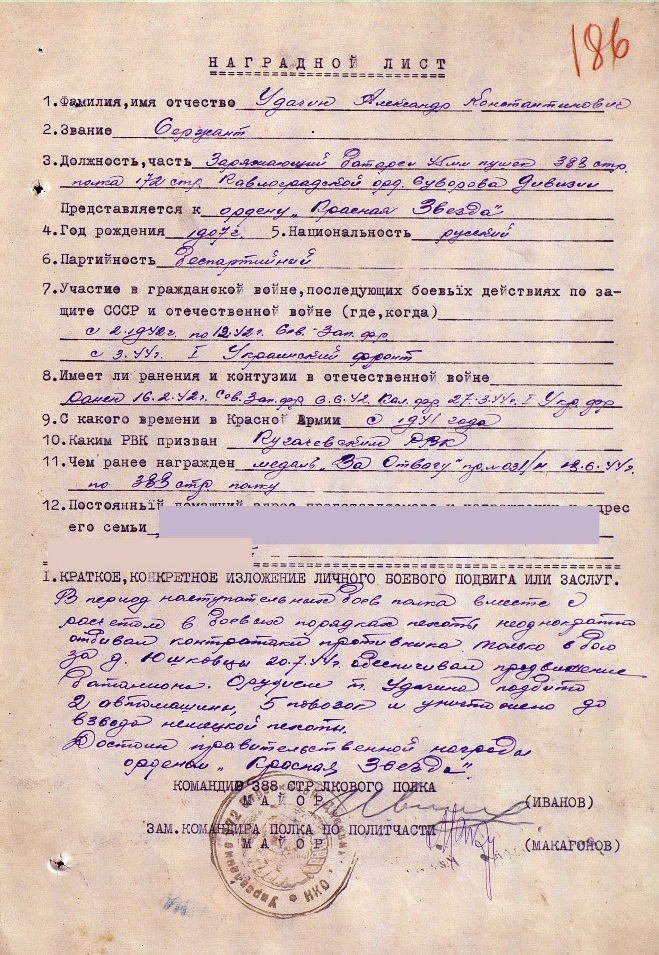 186
НАГРАДНОЙ ЛИСТ
1.Фамилия,имя отчество Удачин Александр Константинович
2.Звание Сержант
3.Должность,часть Заряжающий батареи 45мм пушек 388 стр.
полка 172 стр. Павлоградской орд. Суворова Дивизии
Представляется к ордену „Красная Звезда"
4.Год рождения 1907г. 5.Национальность русский
6.Партийность беспартийный
7.Участие в гражданской войне,последующих боевых действиях по за-
щите СССР и отечественной войне (где,когда)
с 2.1942г. по 12.42г. Сев.-Зап. фр.
с 3.44г. I Украинский фронт
8.Имеет ли ранения и контузии в отечественной войне
ранен 16.2.42г. Сев.Зап.фр 6.6.42. Кал.фр 27.3.44г. I Укр.фр
9.С какого времени в Красной Армии с 1941 года
10.Каким РВК призван РВК
11.Чем ранее награжден медаль „За Отвагу" 12.6.44г.
по 388 стр полку
12.Постоянный домашний адрес представляемого к награждению и адрес
его семьи
I.КРАТКОЕ,КОНКРЕТНОЕ ИЗЛОЖЕНИЕ ЛИЧНОГО БОЕВОГО ПОДВИГА ИЛИ ЗАСЛУГ.
В период наступательных боев полка вместе с
расчетом в боевых порядках пехоты неоднократно
отбивал контратаки противника. только в бою
за д. Юшковцы 20.7.44г. обеспечивал продвижение
батальона. Орудием т. Удачина подбито
2 автомашины, 5 повозок и уничтожено до
взвода немецкой пехоты.
Достоин правительственной награды
орденом „Красная Звезда".
КОМАНДИР 388 СТРЕЛКОВОГО ПОЛКА
МАЙОР (ИВАНОВ)
ЗАМ.КОМАНДИРА ПОЛКА ПО ПОЛИТЧАСТИ
МАЙОР (МАКАГОНОВ)
Управление 172 НКО